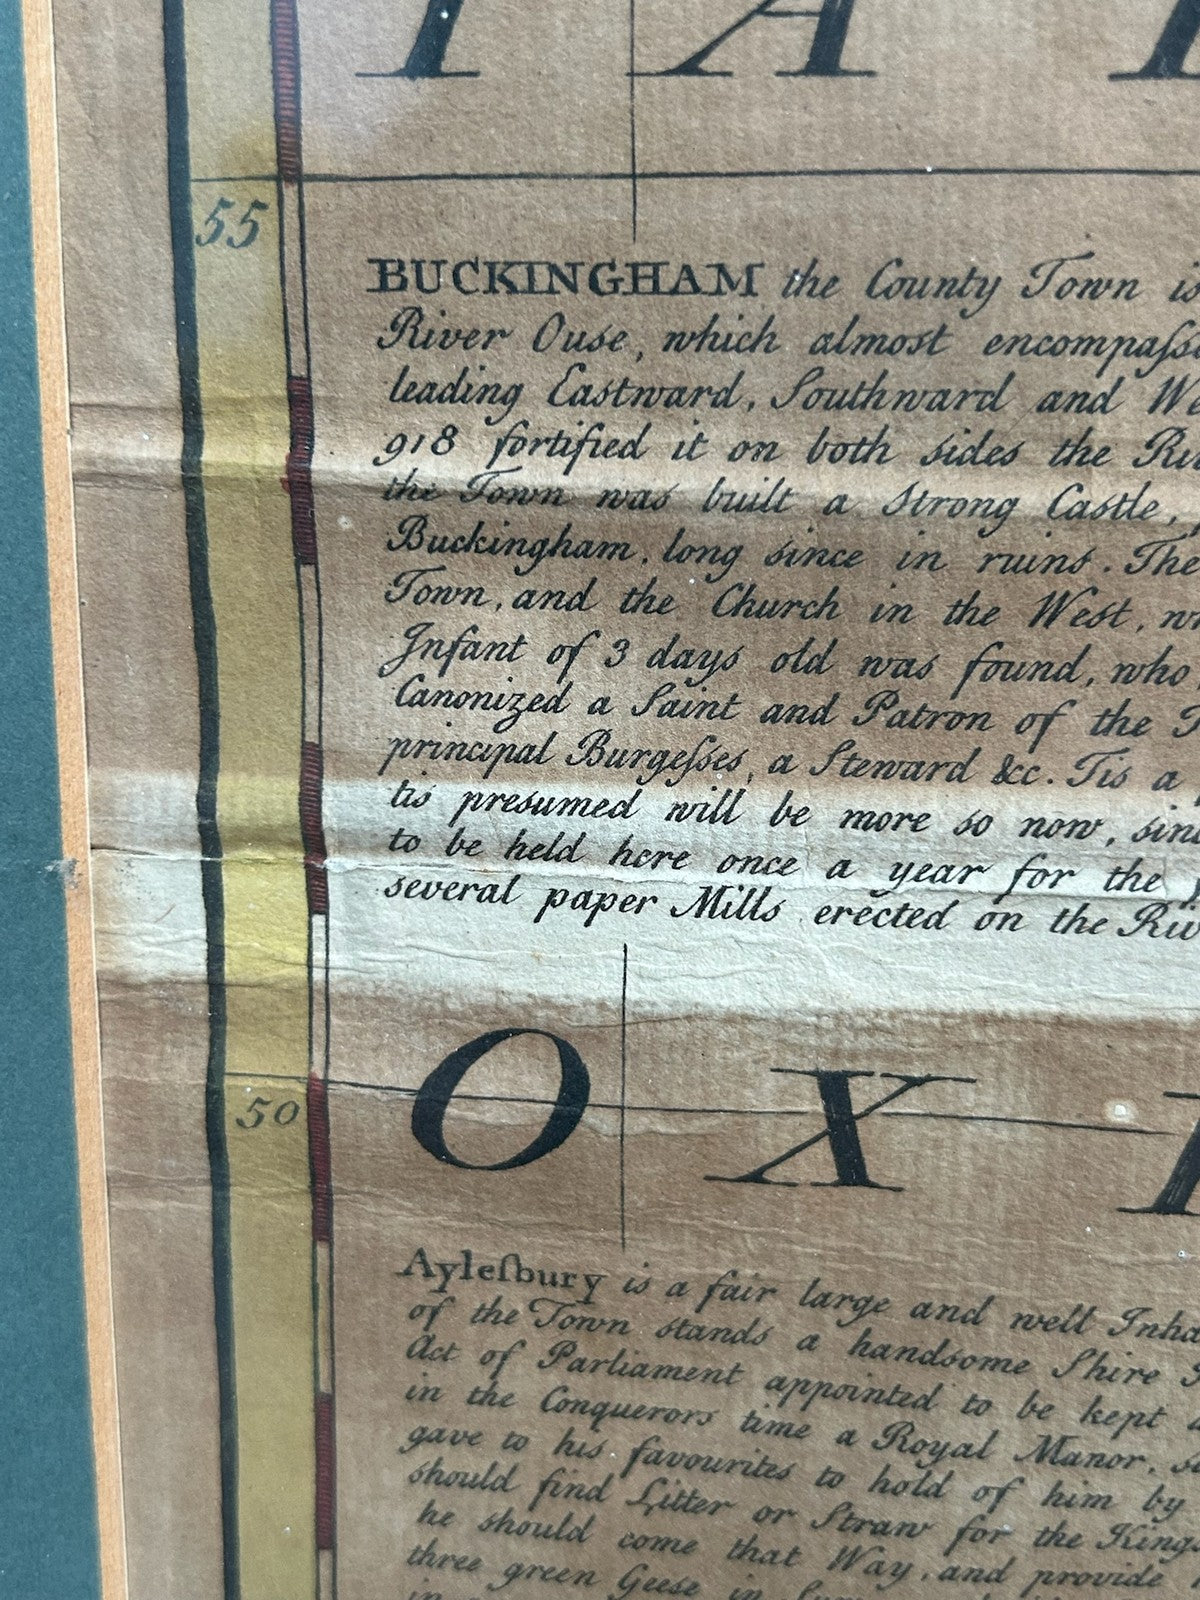 T A
55
BUCKINGHAM the County Town is
River Ouse, which almost encompaſse
leading Eastward, Southward and We
918 fortified it on both sides the Riv
the Town was built a Strong Castle,
Buckingham, long since in ruins. The
Town, and the Church in the West, wh
Infant of 3 days old was found, who
Canonized a Saint and Patron of the T
principal Burgeſses, a Steward &c. Tis a
tis presumed will be more so now, sinc
to be held here once a year for the
several paper Mills erected on the Riv
50
O X
Ayleſbury is a fair large and well Inha
of the Town stands a handsome Shire
Act of Parliament appointed to be kept
in the Conquerors time a Royal Manor, s
gave to his favourites to hold of him by
should find Litter or Straw for the Kings
he should come that Way, and provide
three green Geese in